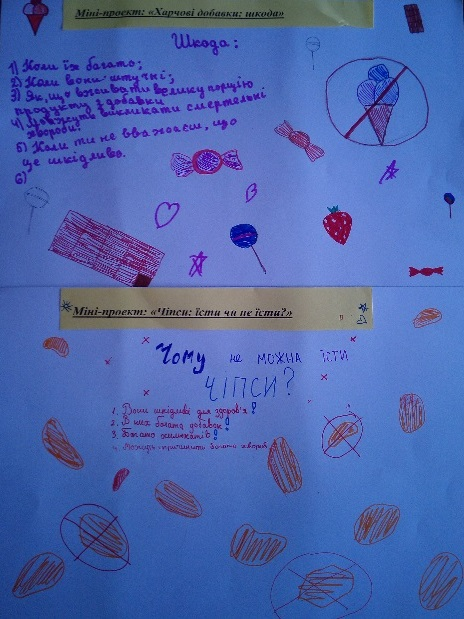 Міні-проект: «Харчові добавки: шкода»
Шкода:
1) Коли їх багато;
2) Коли вони штучні;
3) Якщо вживати велику порцію
продукту з добавки
4) Можуть викликати смертельні
хвороби!
5) Коли ти не вважаєш, що
це шкідливо.
6)
Міні-проект: «Чіпси: їсти чи не їсти?»
Чому не можна їсти
ЧІПСИ?
1. Вони шкідливі для здоров'я!
2. В них багато добавок!
3. Багато хімікатів!
4. багато хвороб